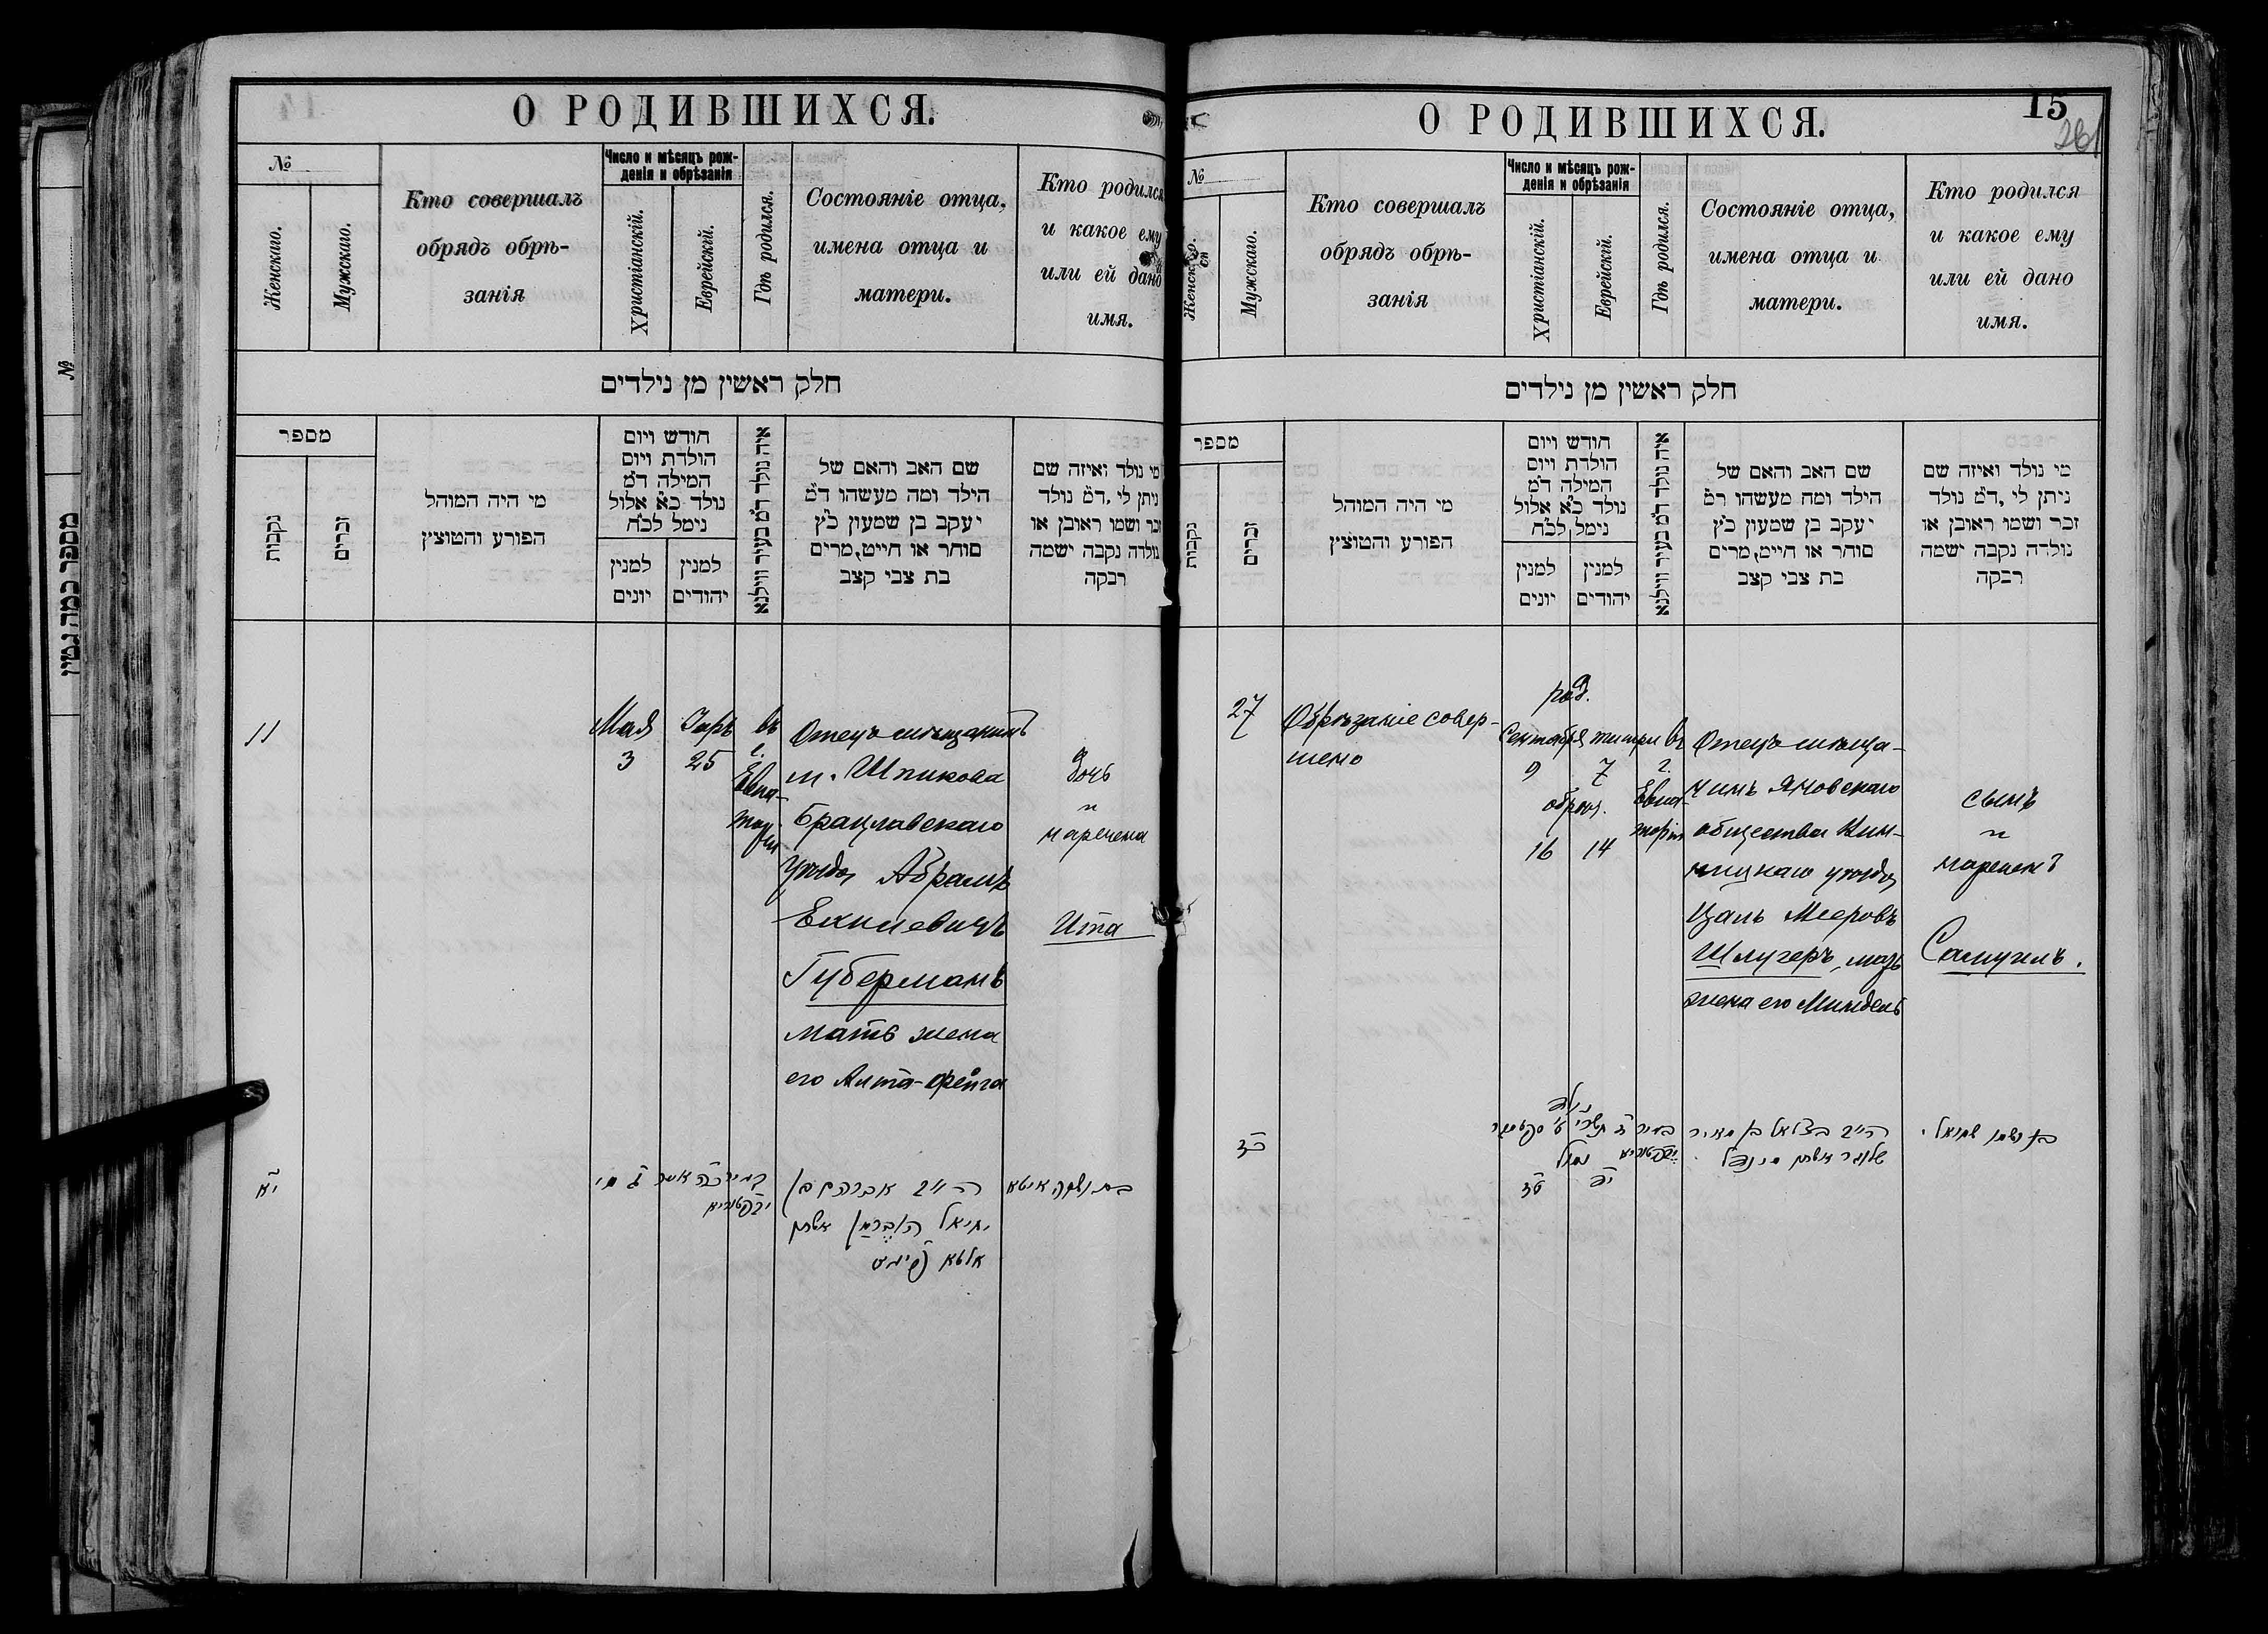 О РОДИВШИХСЯ.
№
Женскаго.
Мужскаго.
Кто совершалъ
обрядъ обрѣ-
занія
Число и мѣсяцъ рож-
денія и обрѣзанія
Христіанскій.
Еврейскій.
Гдѣ родился.
Состояніе отца,
имена отца и
матери.
Кто родился
и какое ему
или ей дано
имя.
חלק ראשין מן נילדים
מספר
נקבות
זכרים
מי היה המוהל
הפורע והמוצץ
חודש ויום
הולדת ויום
המילה ד״מ
נולד כ״א אלול
נימל לכ״ח
למנין
יונים
למנין
יהודים
איה נולד ד״מ בעיר ווילנא
שם האב והאם של
הילד ומה מעשהו ד״מ
יעקב בן שמעון כ״ץ
סוחר או חייט, מרים
בת צבי קצב
מי נולד ואיזה שם
ניתן לי, ד״מ נולד
זכר ושמו ראובן או
נולדה נקבה ישמה
רבקה
11
Мая
3
Іиръ
25
въ
г.
Евпа-
торіи
Отецъ мѣщанинъ
м. Шпикова
Брацлавскаго
уѣзда Абрамъ
Ехиліевичъ
Губерманъ
мать жена
его Алта-Фейга
Дочь
и
наречена
Ита
יא
אברהם בן
יחיאל
אלטא
בת ושמה איטא
О РОДИВШИХСЯ.
15
261
№
Женскаго.
Мужскаго.
Кто совершалъ
обрядъ обрѣ-
занія
Число и мѣсяцъ рож-
денія и обрѣзанія
Христіанскій.
Еврейскій.
Гдѣ родился.
Состояніе отца,
имена отца и
матери.
Кто родился
и какое ему
или ей дано
имя.
חלק ראשין מן נילדים
מספר
נקבות
זכרים
מי היה המוהל
הפורע והמוצץ
חודש ויום
הולדת ויום
המילה ד״מ
נולד כ״א אלול
נימל לכ״ח
למנין
יונים
למנין
יהודים
איה נולד ד״מ בעיר ווילנא
שם האב והאם של
הילד ומה מעשהו ד״מ
יעקב בן שמעון כ״ץ
סוחר או חייט, מרים
בת צבי קצב
מי נולד ואיזה שם
ניתן לי, ד״מ נולד
זכר ושמו ראובן או
נולדה נקבה ישמה
רבקה
27
Обрѣзаніе совер-
шено
род.
Сентября тишри
9 7
обрѣз.
16 14
въ
г.
Евпа-
торіи
Отецъ мѣща-
нинъ Яновскаго
общества Вин-
ницкаго уѣзда
Цаль Мееровъ
Шлугеръ, мать
жена его Миндель
сынъ
и
нареченъ
Самуилъ.
כז
נולד
ז תשרי ט סקטמבר
נמול
יד טז
בצלאל בן מאיר
בן ושמו שמואל